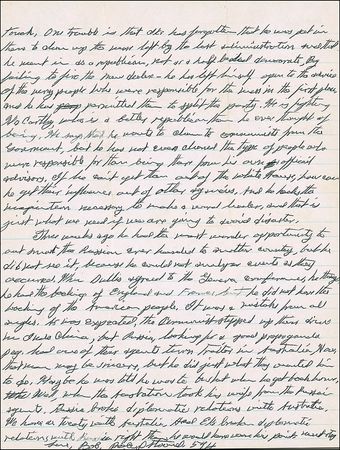 touch, One trouble is that des. has forgotten that he was put in
there to clean up the mess left by the last administration and that
he went in as a republican, not as a half baked democrat. By
failing to fire the New dealers he has left himself open to the advice
of the very people who were responsible for the mess in the first place
and he has permitted them to split the party. He is fighting
McCarthy who is a better republican than he ever thought of
being. He says that he wants to clean to communists from the
Government, but he has not even cleaned the type of people who
were responsible for them being there from his own official
advisors. If he can't get them out of the White House, how can
he get their influence out of other agencies. And he lacks the
imagination necessary to make a world leader, and that is
just what we need if we are going to avoid disaster.
Three weeks ago he had the most wonder opportunity to
out smart the Russians ever handed to another country, but he
did not use it, because he could not analyze events as they
occurred. When Dulles agreed to the Geneva conference, he thought
he had the backing of England and France, but he did not have the
backing of the American people. It was a mistake from all
angles. As was expected, the Communist stepped up their drives
in Indo China, but Russia, looking for a good propaganda
peg, had one of their agents turn traitor in Australia. Now,
that man may be sincere, but he did just what they wanted in
to do. Maybe he was told he was to be but when he got back home,
Well, when the Australian took his wife from the Russian
agents, Russia broke diplomatic relations with Australia.
We have a treaty with Australia. Had Ike broken diplomatic
relations with right then he would have won her point